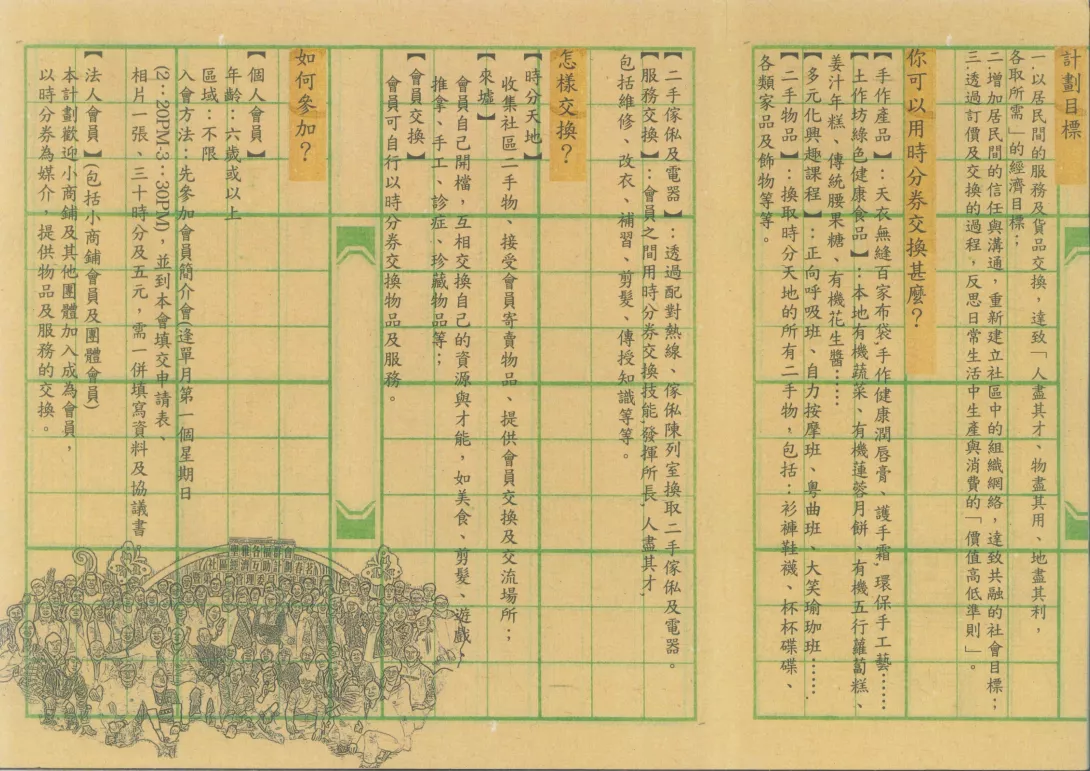 計劃目標
一.以居民間的服務及貨品交換，達致「人盡其才、物盡其用、地盡其利，
各取所需」的經濟目標；
二.增加居民間的信任與溝通，重新建立社區中的組織網絡，達致共融的社會目標；
三.透過訂價及交換的過程，反思日常生活中生產與消費的「價值高低準則」。
你可以用時分券交換甚麼？
【手作產品】：天衣無縫百家布袋,手作健康潤唇膏、護手霜,環保手工藝……
【土作坊綠色健康食品】：本地有機蔬菜、有機蓮蓉月餅、有機五行蘿蔔糕、
薑汁年糕、傳統腰果糖、有機花生醬……
【多元化興趣課程】：正向呼吸班、自力按摩班、粵曲班、大笑瑜珈班……
【二手物品】：換取時分天地的所有二手物，包括：衫褲鞋襪、杯杯碟碟、
各類家品及飾物等等。
【二手傢俬及電器】：透過配對熱線、傢俬陳列室換取二手傢俬及電器。
【服務交換】：會員之間用時分券交換技能,發揮所長,人盡其才,
包括維修、改衣、補習、剪髮、傳授知識等等。
怎樣交換？
【時分天地】
收集社區二手物、接受會員寄賣物品、提供會員交換及交流場所；
【來墟】
會員自己開檔，互相交換自己的資源與才能，如美食、剪髮、遊戲、
推拿、手工、診症、珍藏物品等；
【會員交換】
會員可自行以時分券交換物品及服務。
如何參加？
【個人會員】
年齡：六歲或以上
區域：不限
入會方法：先參加會員簡介會(逢單月第一個星期日
(2：20PM-3：30PM)，並到本會填交申請表、
相片一張、三十時分及五元，需一併填寫資料及協議書。
【法人會員】(包括小商鋪會員及團體會員)
本計劃歡迎小商鋪及其他團體加入成為會員，
以時分券為媒介，提供物品及服務的交換。
聖雅各福群會